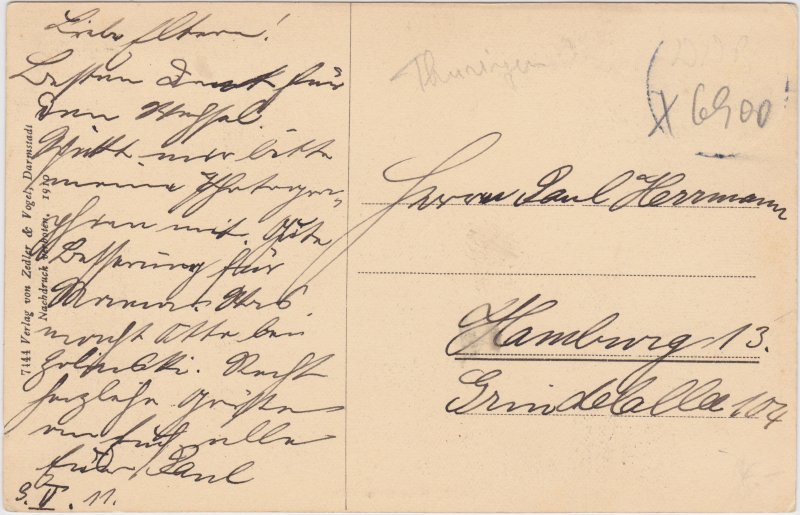 Liebe Eltern!
Besten Dank für
den Wechsel.
Schickt mir bitte
meine Photogra-
phien mit. Gute
Besserung für
Mama. Was
macht Otto bei
Recht
herzliche Grüße
an Euch alle
Euer Paul
3. V. 11.
7444 Verlag von Zedler & Vogel, Darmstadt
Nachdruck verboten. 1910
Thüringen
X 6900
Herrn Paul Herrmann
Hamburg 13.
Grindelallee 104